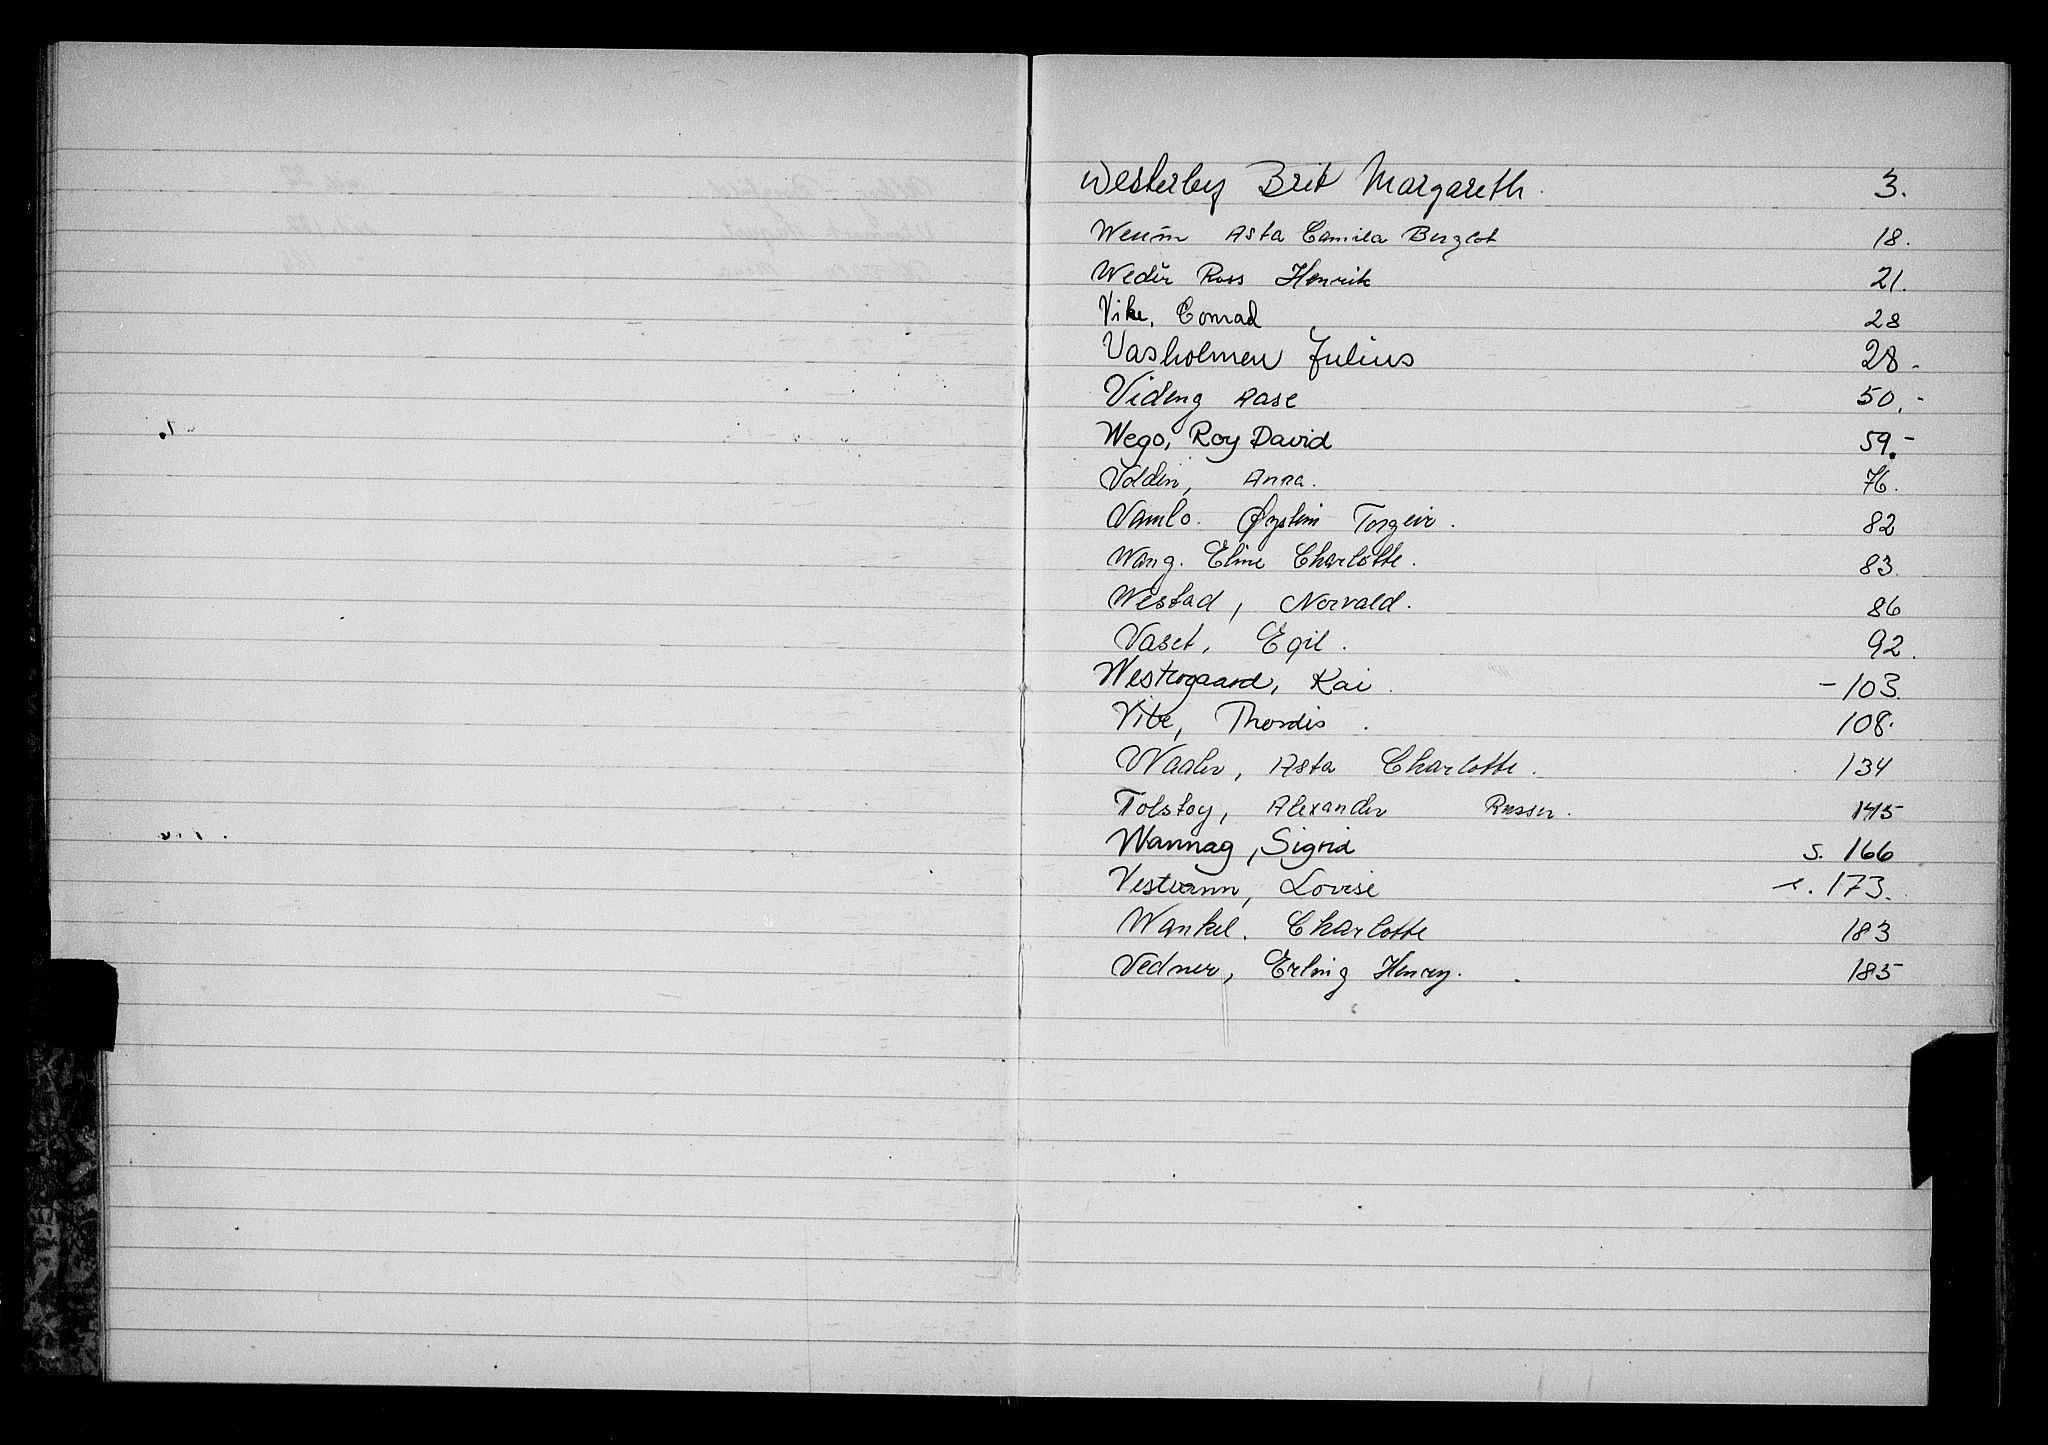 Westerby Brit Margareth. 3.
Asta Camilla Bergliot 18.
Weder Ross Henrik 21.
Vike, Conrad 28
Vasholmen Julius 28.
Videng Aase 50.-
Wego, Roy David 59.-
Volden, Anna. 76.
Vamlo. Øystein Torgeir. 82
Wang. Eline Charlotte. 83.
Westad, Norvald. 86
Vaset, Egil. 92.
Westergaard, Kai. - 103.
Vibe, Thordis. 108.
Waaler, Asta Charlotte. 134
Tolstoy, Alexander Russer. 145
Wannag, Sigrid s. 166
Lovise s. 173.
Wankel. Charlotte 183
Vedner, Erling Henry. 185